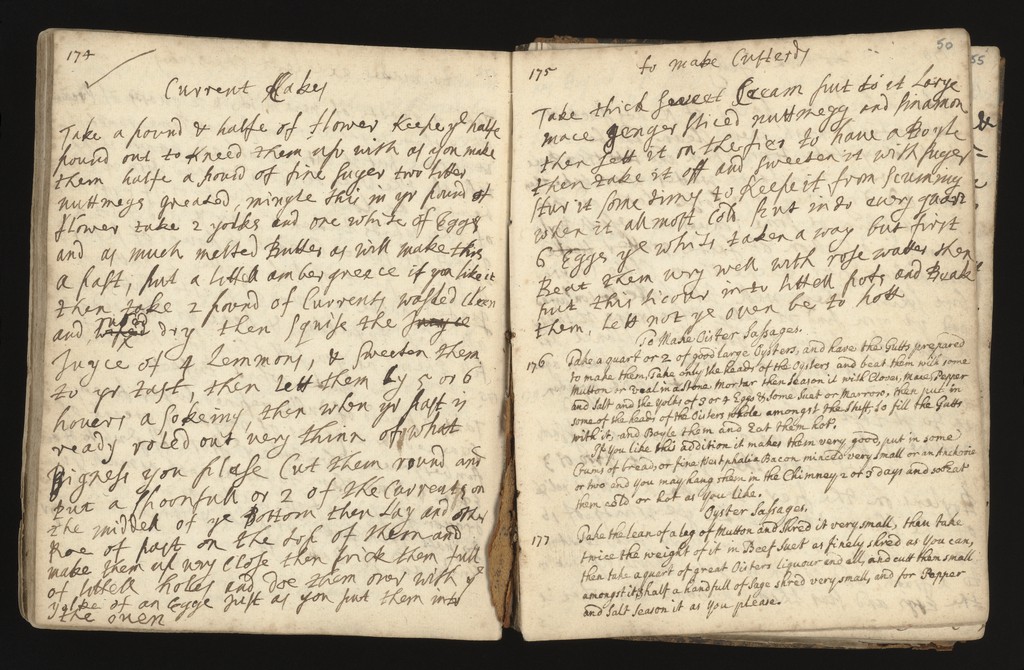 174
Current Cakes
Take a pound & halfe of flower Keepe ye halfe
pound out to Kneed them up with as you make
them halfe a pound of fine suger two litter
nuttmegs greated, mingle this in yr pound of
flower take 2 yolks and one white of Eggs
and as much melted Butter as will make this
a past, put a littell ambergreece if you like it
then take 2 pound of Currents washed cleen
and dry then squise the
Juyce of 4 Lemmons, & sweeten them
to yr tast, then lett them ly 5 or 6
houers a sokeing then when yr past is
ready roled out very thinn of what
Bigness you please Cut them round and
put a spoonfull or 2 of the Currents on
the middell of ye Bottom then Lay and other
Roe of past on the top of them and
make them up very close then prick them full
of littell holes and doe them over with ye
yolke of an Egge just as you put them into
the oven
50
175
to make Custerds
Take thick sweet Cream put to it Large
mace genger sliced nuttmegg and sinamon
then sett it on the fier to have a Boyle
then take it off and sweeten it with suger
stur it some times to Keepe it from scumming
when it allmost Cold put in to every quart
6 Eggs ye whits taken a way but first
Beat them very well with rose watter then
put this licour in to littell pots and Buake
them, lett not ye oven be to hott
To Make Oister Sassages.
176 Take a quart or 2 of good large Oysters, and have the Gutts prepared
to make them, Take only the heads of the Oysters and beat them with some
Mutton or Veal in a stone Mortar then season it with Cloves, Mace, Pepper
and Salt and the Yolts of 3 or 4 Eggs & some Suet or Marrow, then put in
some of the heads of the Oisters whole amongst the stuff, So fill the Gutts
with it, and Boyle them and Eat them hot.
If you like this addition it makes them very good, put in some
Crums of bread, or fine Westphalia Bacon minced very small or an Anchovie
or two and you may hang them in the Chimney 2 or 3 days and so Eat
them cold or hot as You like.
Oyster Sassages.
177 Take the lean of a leg of Mutton and shred it very small, then take
twice the weight of it in Beef Suet as finely shred as You can,
then take a quart of great Oisters liquour and all, and cut them small
amongst it, half a handfull of Sage shred very small, and for Pepper
and Salt Season it as You please.
55